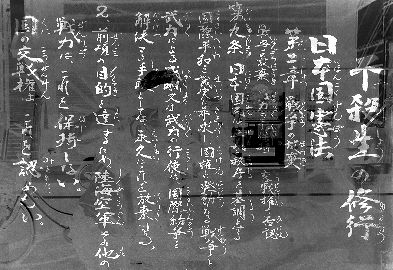 不殺生の修行
日本国憲法
第二章 戦争の放棄
戦争の放棄、戦力及び交戦権の否認
第九条 日本国民は、正義と秩序を基調とする
国際平和を誠実に希求し、国権の発動たる戦争と
武力による威嚇又は武力の行使は、国際紛争を
解決する手段としては、永久にこれを放棄する。
2. 前項の目的を達するため、陸海空軍その他の
戦力は、これを保持しない。
国の交戦権は、これを認めない。